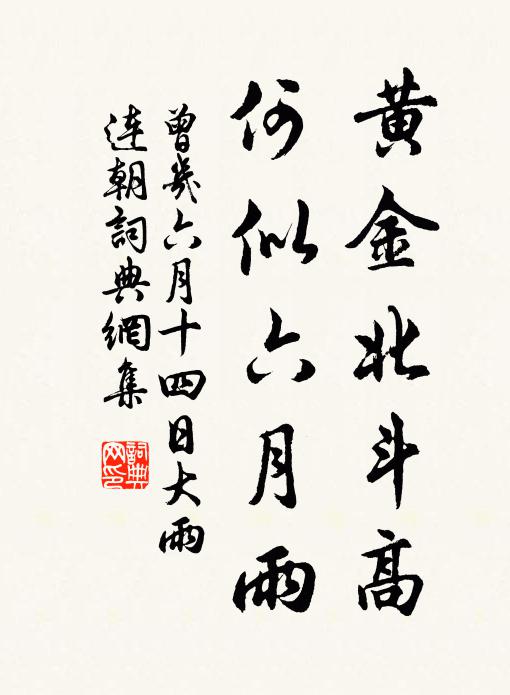 黃金北斗高
何似六月雨
曾幾六月十四日大雨
連朝詞典網集
詞典
网印